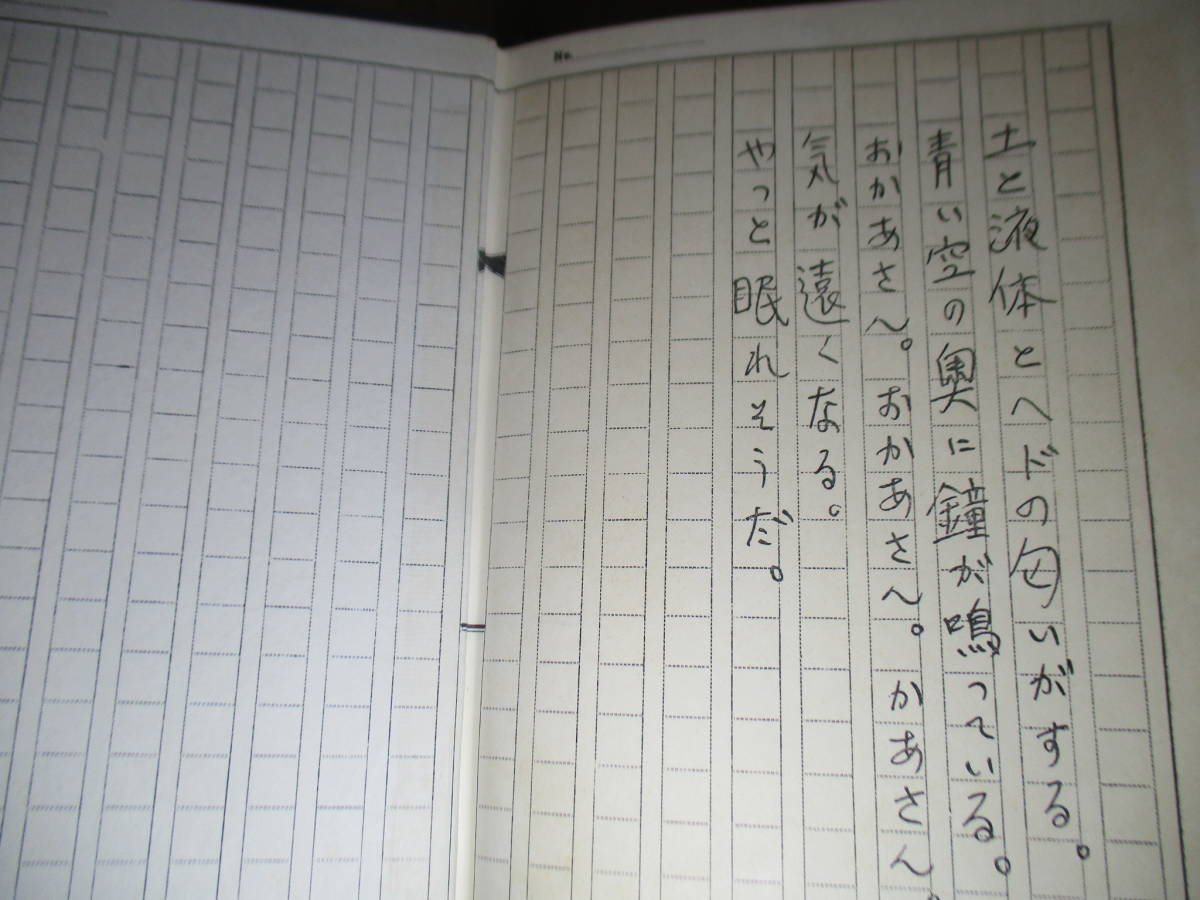 No.
土と液体とヘドの匂いがする。
青い空の奥に鐘が鳴っている。
おかあさん。おかあさん。かあさん。
気が遠くなる。
やっと眠れそうだ。